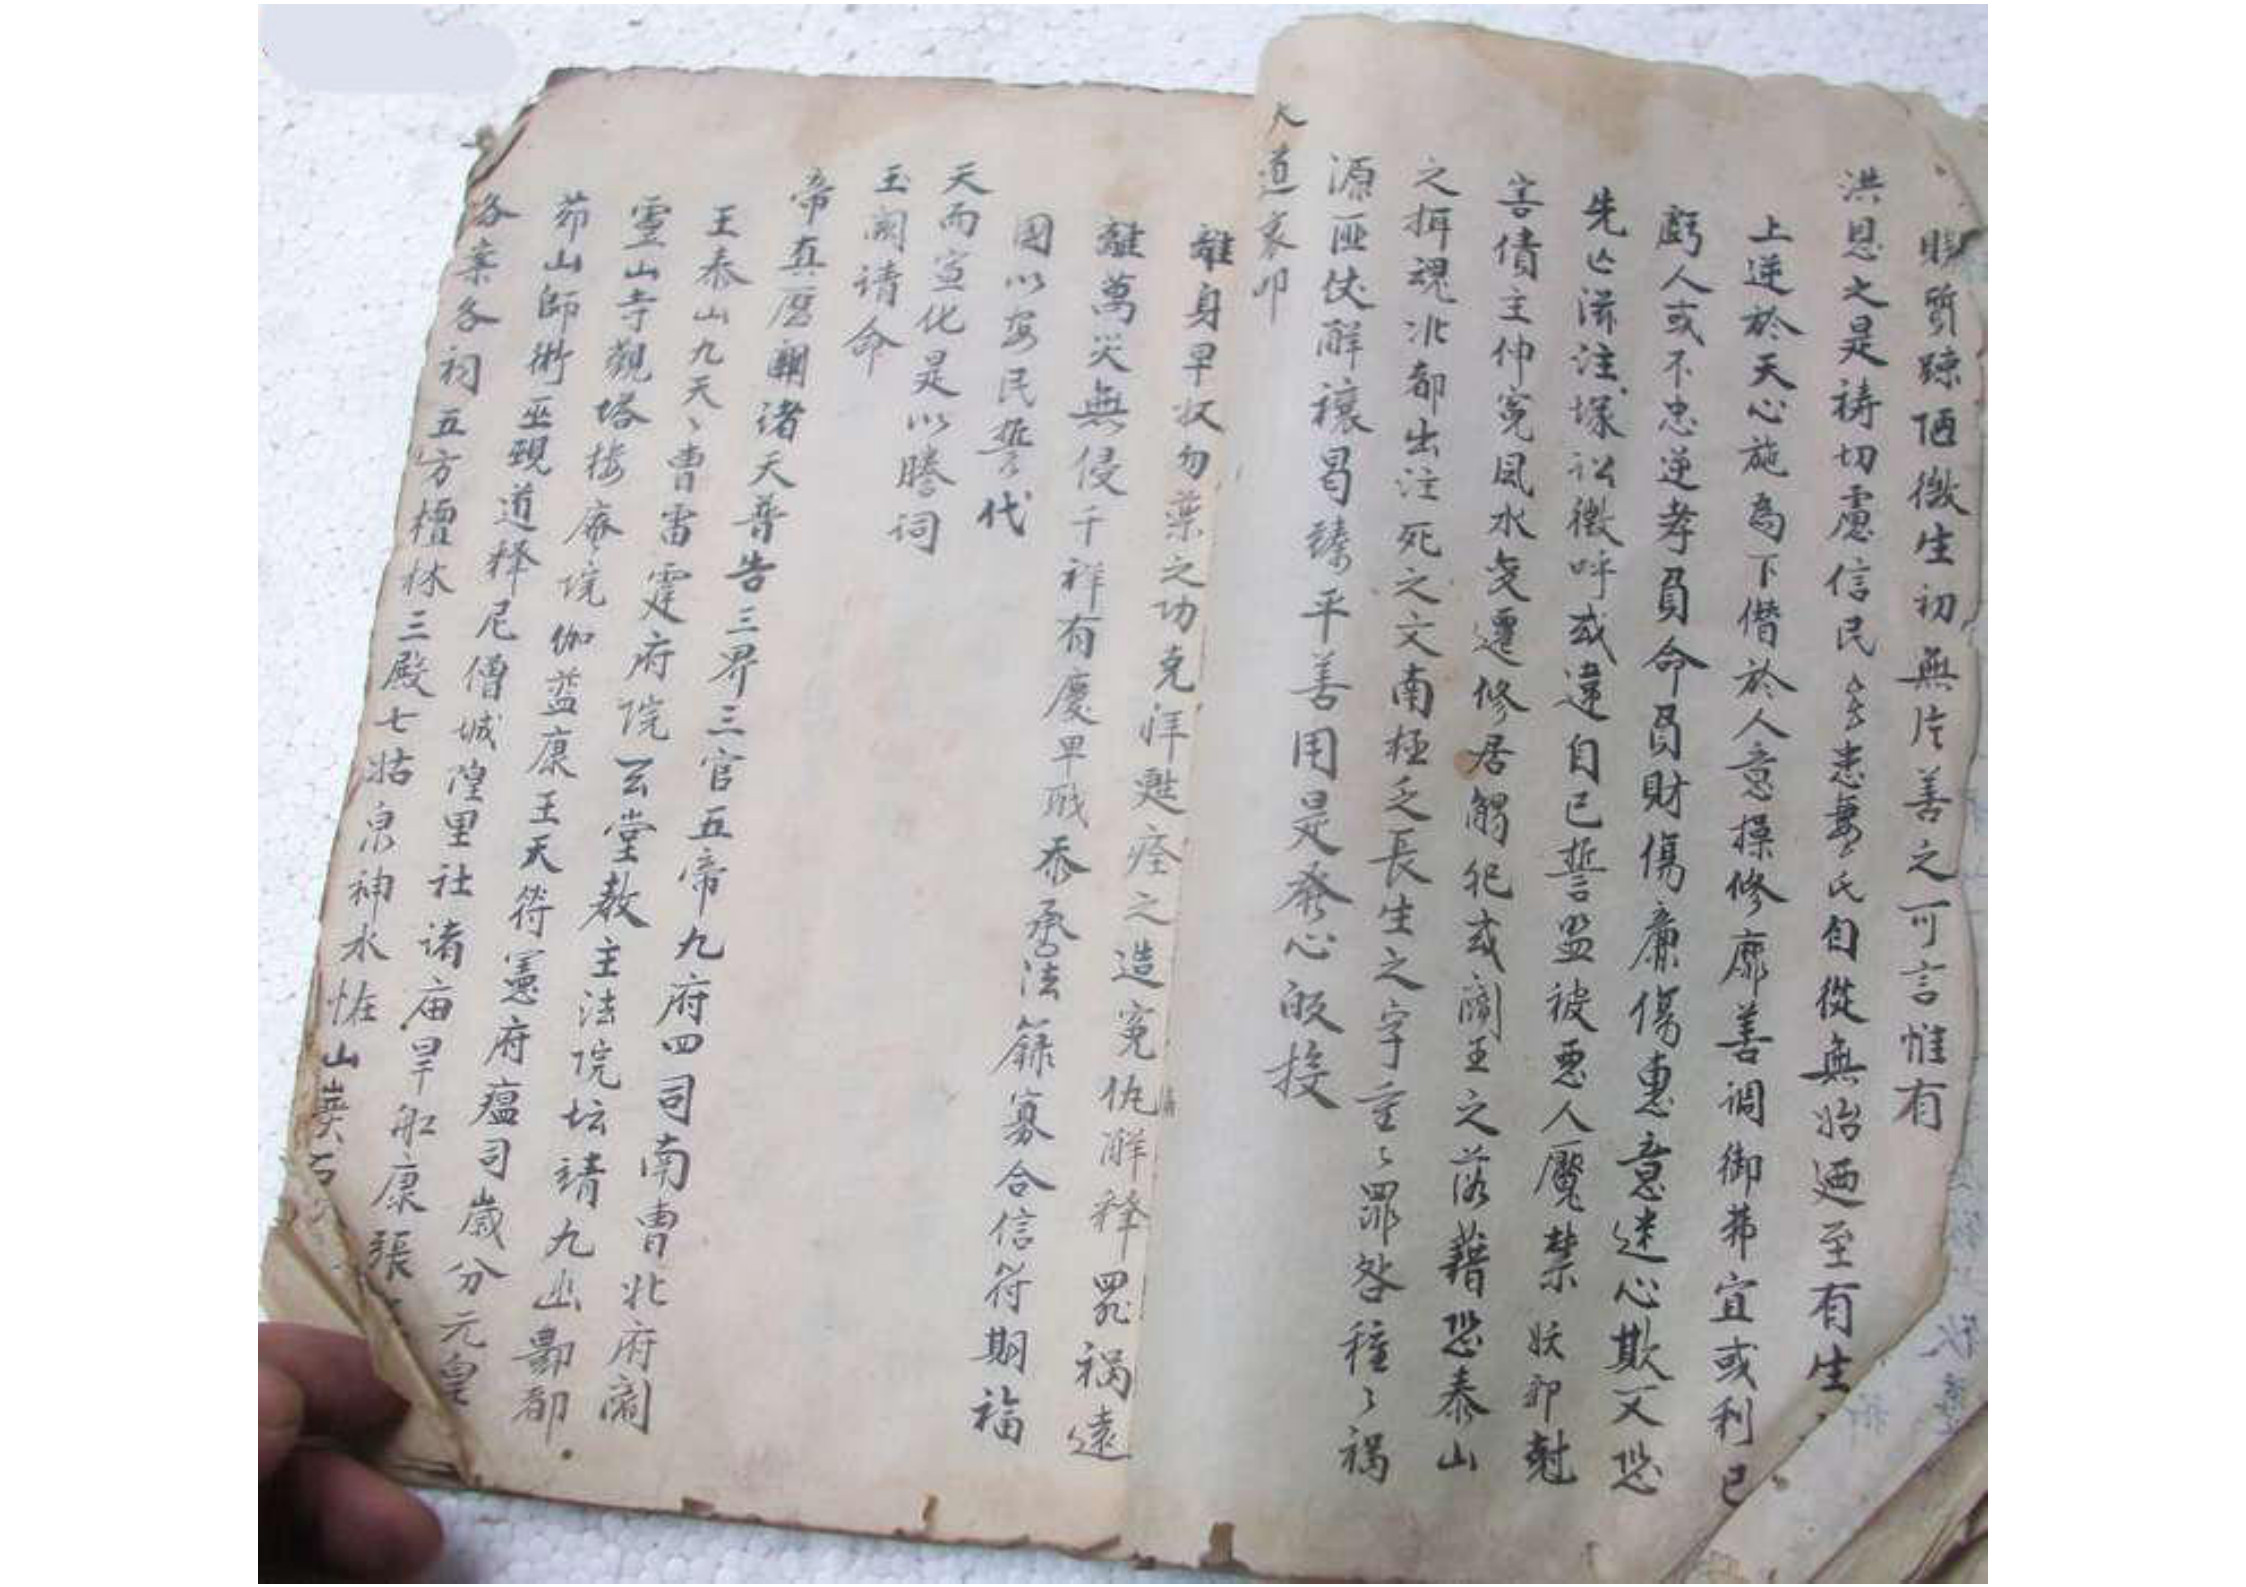 質疎陋微生初無片善之可言惟有
洪恩之是禱切慮信民患妻氏自從無始迺至有生
上逆於天心施為下僭於人意操修靡善調御弗宜或利己
虧人或不忠逆孝負命負財傷廉傷惠意迷心欺又恐
先亡滯注塚訟徵呼或違自己誓盟被惡人魘禁妖邪尅
害債主仲冤風水变遷修居觸犯或閻王之落藉恐泰山
之揖魂北都出注死之文南極乏長生之字重々罪咎種々禍
源匪仗解禳曷臻平善用是發心皈投
大道哀叩
離身早扠勿藥之功克拜甦痊之造冤仇解釋罪禍遠
離萬災無侵千祥有慶畢戝忝承法籙寡合信符期福
國以安民誓代
天而宣化是以謄詞
玉闕請命
帝真歷關诸天普告三界三官五帝九府四司南曹北府閻
王泰山九天々曹雷霆府院玄堂教主法院坛靖九幽酆都
靈山寺觀塔楼庵院伽蓝康王天符憲府瘟司歲分元皇
茆山師術巫覡道释尼僧城隍里社诸庙旱船康張
各案各祠五方檀林三殿七姑泉神水恠山